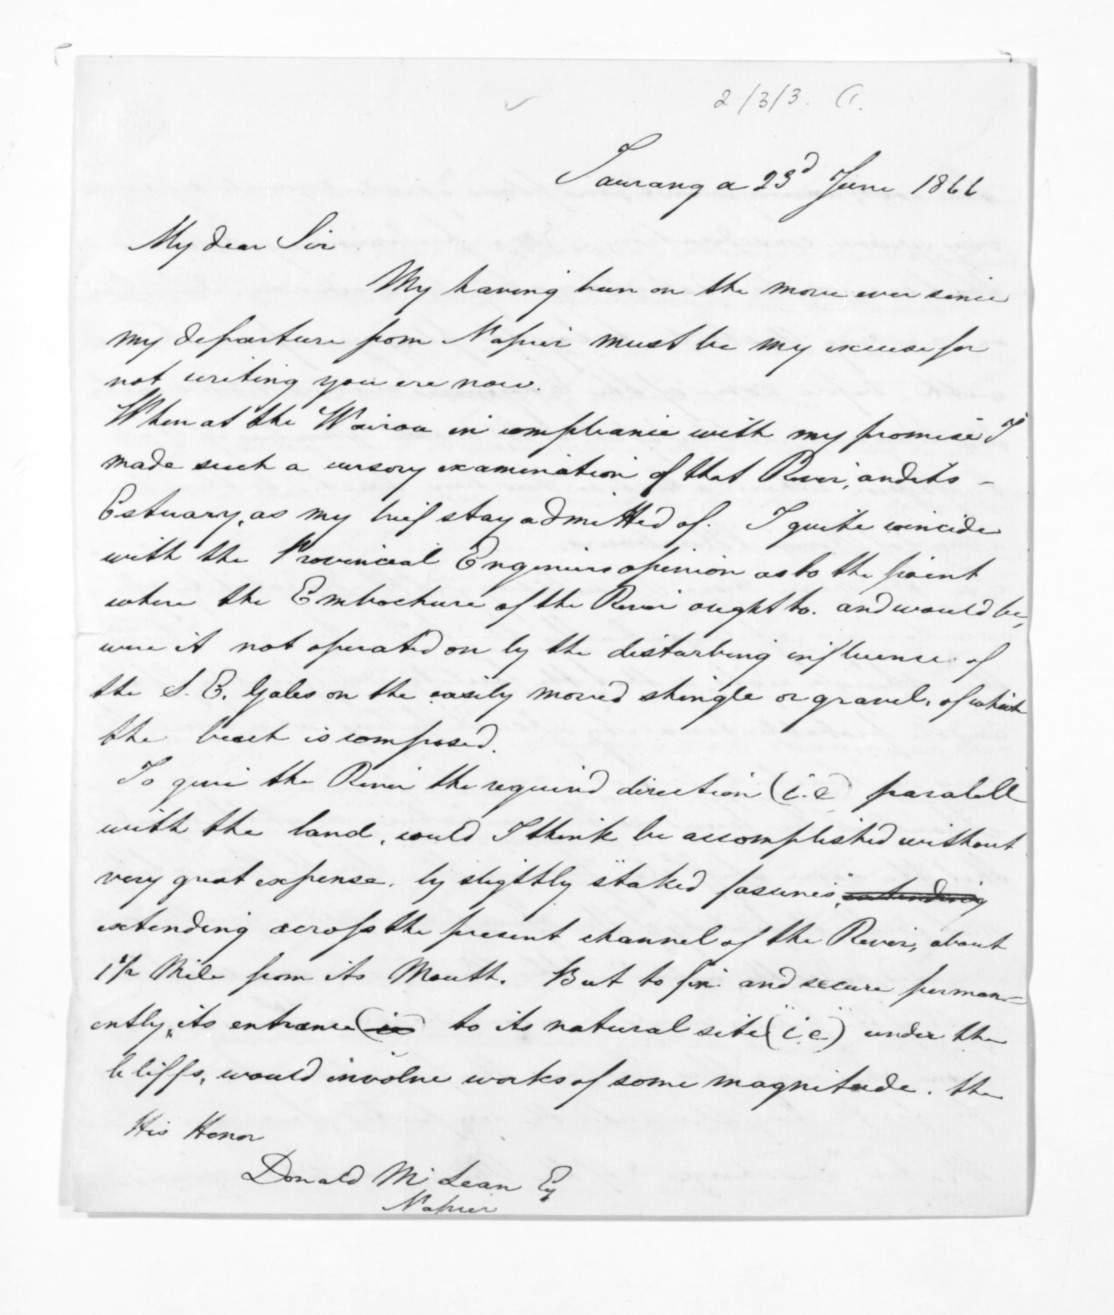 2/3/3. G.
Tauranga 23d June 1866
My dear Sir
My having been on the move ever since
my departure from Napier must be my excuse for
not writing you ere now.
When at the Wairoa in compliance with my promise I
made such a cursory examination of that River, and its -
Estuary, as my brief stay admitted of. I quite coincide
with the Provincial Engineers opinion as to the point
where the Embochure of the River ought to. and would be,
were it not operated on by the disturbing influence of
the S. E. Gales on the easily moved shingle or gravel, of which
the beach is composed.
To give the River the required direction (i.e) paralell
with the land, could I think be accomplished without
very great expense. by slightly "staked fascines", extending
extending across the present channel of the River, about
1½ Mile from its Mouth. But to fix and secure perman=
ently, its entrance (ie) to its natural site (i.e) under the
Cliffs, would involve works of some magnitude. the
His Honor
Donald McLean Esq
Napier